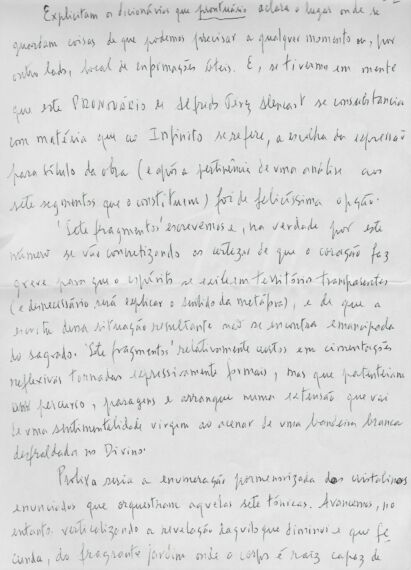 Explicitam os dicionários que prontuário aclara o lugar onde se
guardam coisas de que podemos precisar a qualquer momento ou, por
outro lado, local de informações úteis. E, se tivermos em mente
que este PRONTUÁRIO de Alfredo Perez Alencart se consubstancia
com matéria que ao Infinito se refere, a escolha da expressão
para título da obra (e após a pertinência de uma análise aos
sete segmentos que o constituem) foi de felicíssima opção.
'Sete fragmentos' escrevemos e, na verdade por este
número se vão concretizando as certezas de que o coração faz
greve para que o espírito se exile em território transparentes
(e desnecessário será explicar o sentido da metáfora), e de que a
escrita dessa situação resultante não se encontra emancipada
do sagrado. 'Sete fragmentos' relativamente curtos em cimentações
reflexivas tornadas expressivamente formais, mas que patenteiam
percurso, paragens e arranque numa extensão que vai
de uma sentimentalidade virgem ao acenar de uma bandeira branca
desfraldada no Divino.
Prolixa seria a enumeração pormenorizada dos cristalinos
enunciados que orquestram aquelas sete tónicas. Avancemos, no
entanto, verticalizando a revelação daquilo que dimina e que fe-
cunda, do fragrante jardim onde o corpo é raiz capaz de